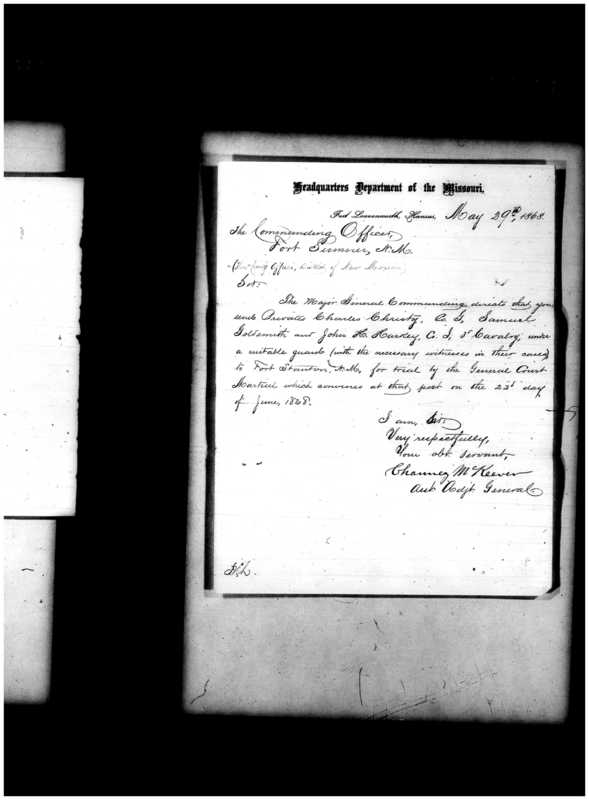 Headquarters Department of the Missouri,
Fort Leavenworth, Kansas, May 29th, 1868.
The Commanding Officer,
Fort Sumner, N.M.
(Thro' Comd'g Officer, District of New Mexico)
Sir:
The Major General Commanding directs that you
send Privates Charles Christy, Co. G, Samuel
Goldsmith and John H. Harkey, Co. I, 3d Cavalry, under
a suitable guard (with the necessary witnesses in their cases)
to Fort Stanton, N.M., for trial by the General Court
Martial which convenes at that post on the 23d day
of June, 1868.
I am, Sir:
Very respectfully,
Your obt. Servant,
Chauncey McKeever
Asst Adjt General